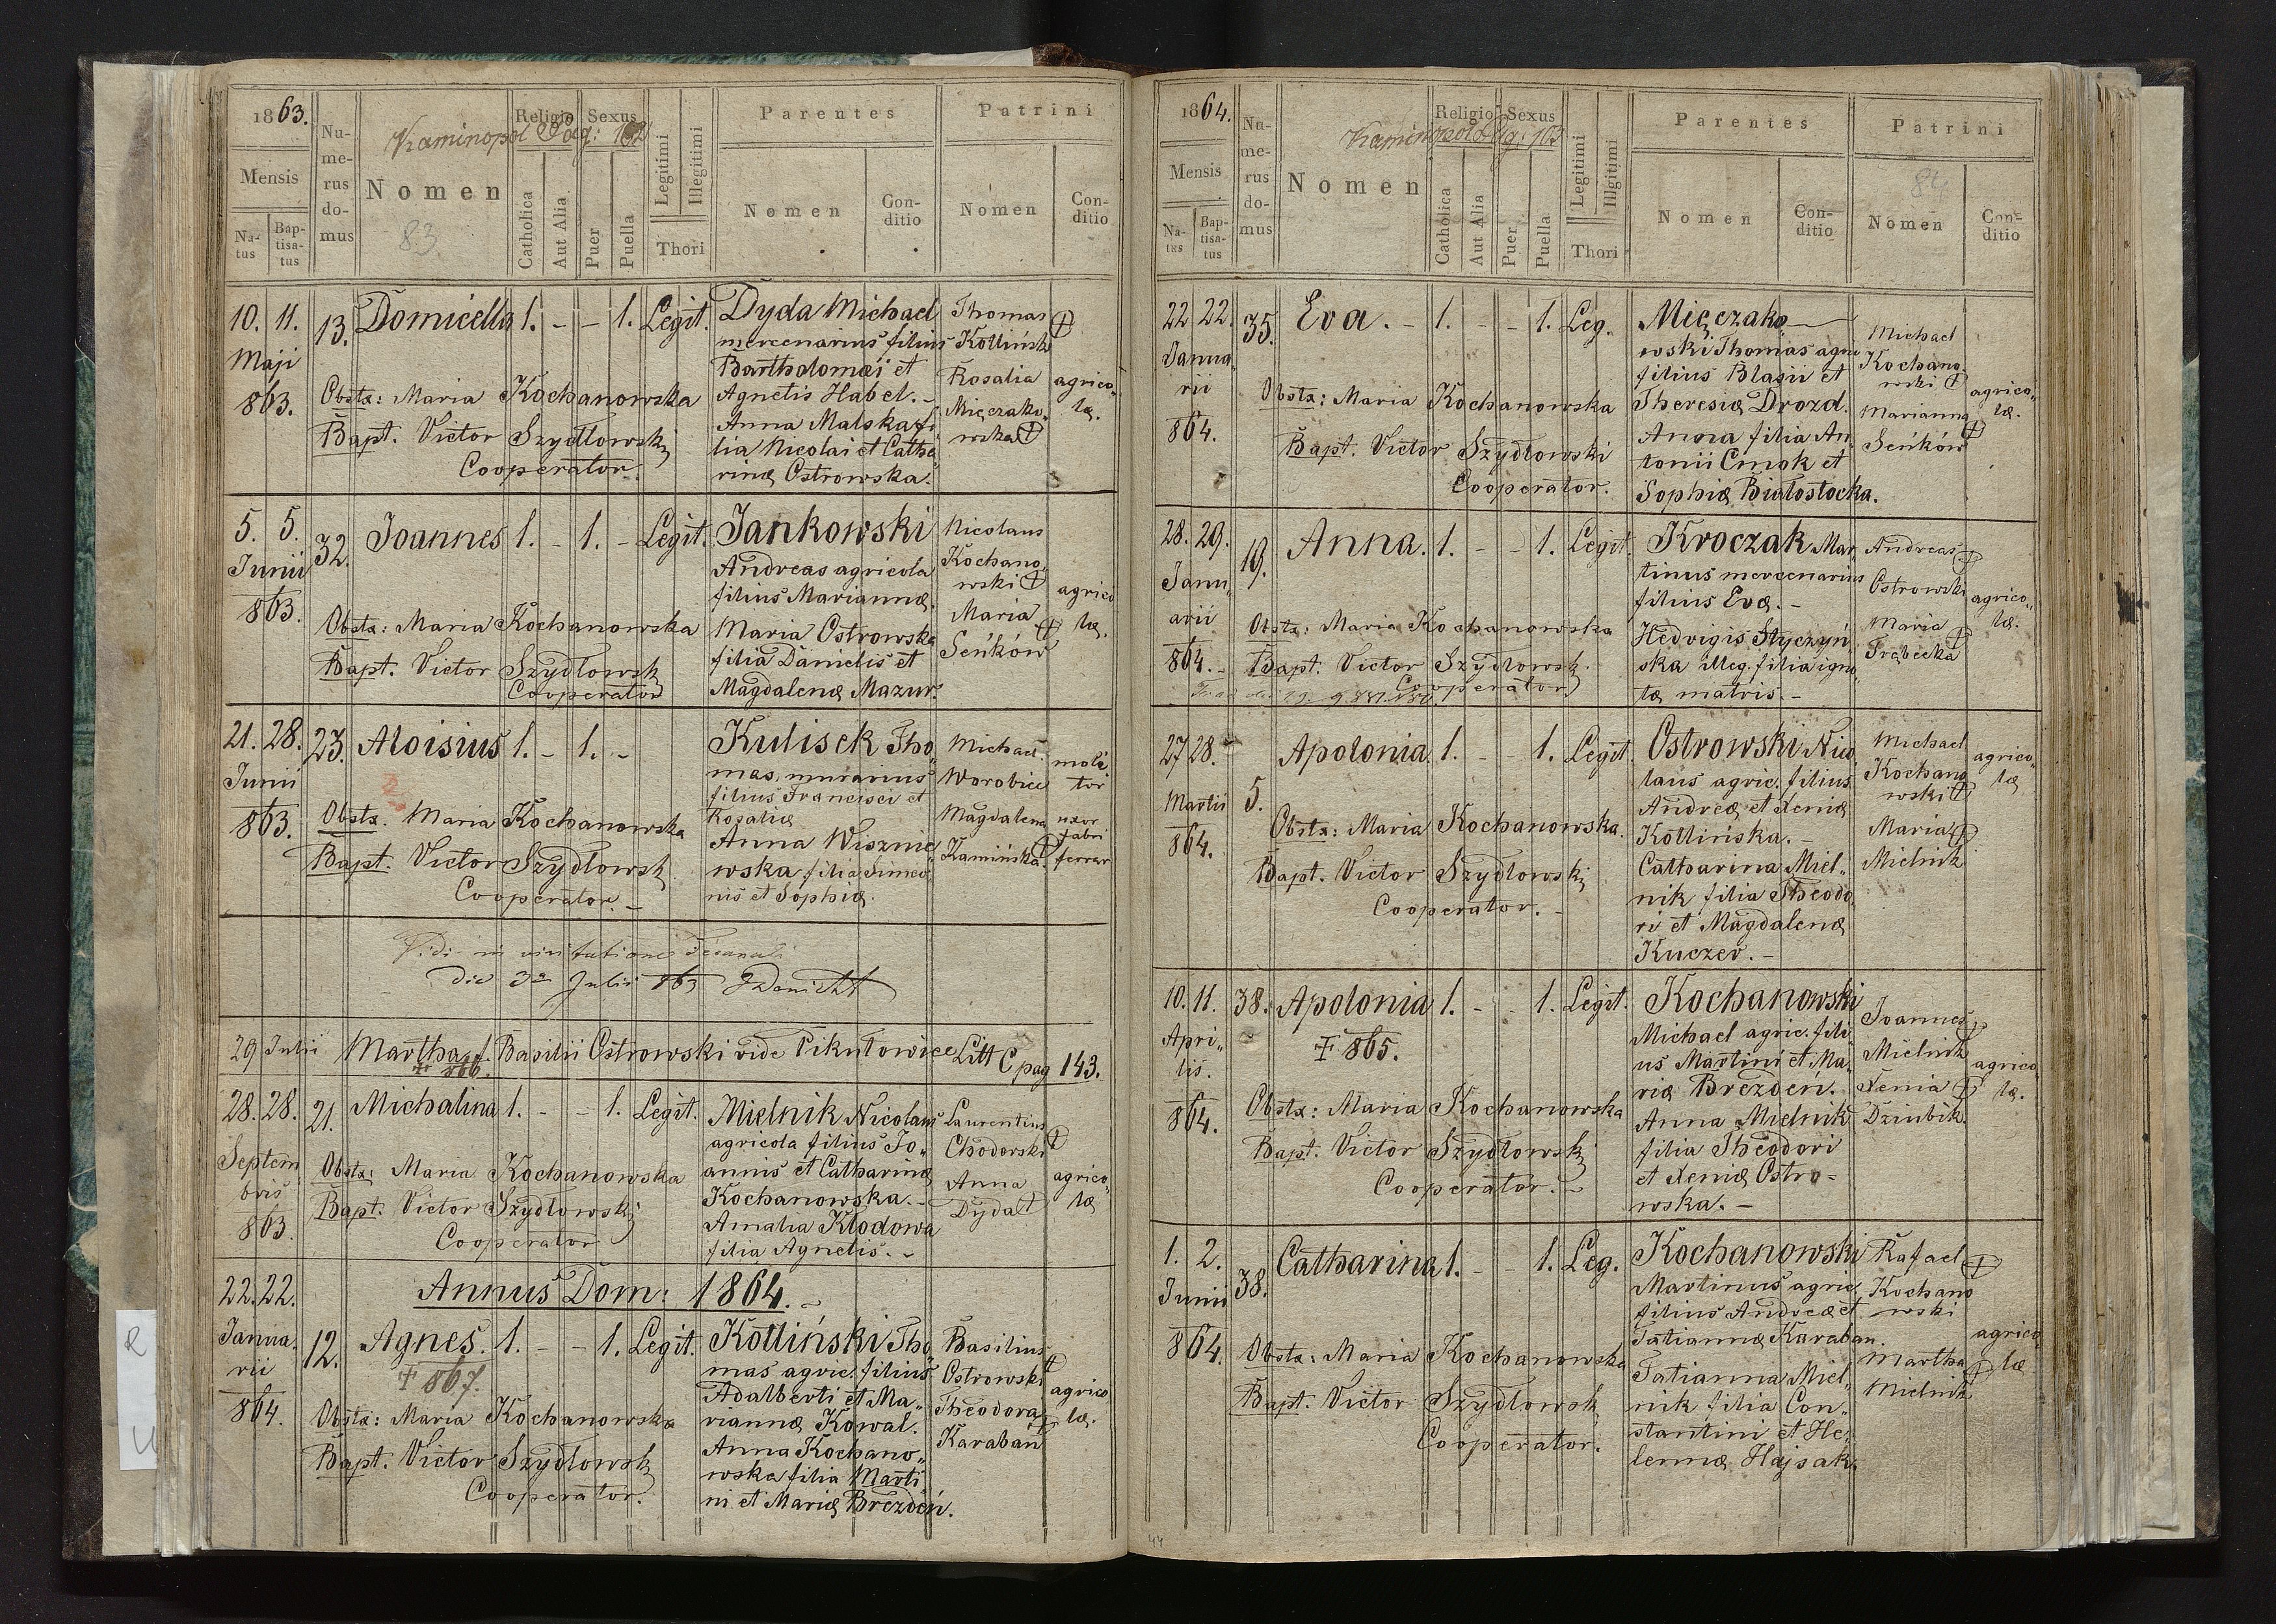 1863.
Mensis
Na-
tus
Bap-
tisa-
tus
Nu-
me-
rus
do-
mus
Kaminopol Pag: 162
Nomen
83
Religio
Catholica
Aut Alia
Sexus
Puer
Puella
Legitimi
Illegitimi
Thori
Parentes
Nomen
Con-
ditio
Patrini
Nomen
Con-
ditio
10. 11.
Maji
863.
13.
Domicella 1. - - 1. Legit.
Obstx: Maria Kochanowska
Bapt. Victor Szydłowski
Cooperator.
Dyda Michael
mercenarius filius
Bartholomæi et
Agnetis Habel. -
Anna Malska fi
lia Nicolai et Catha
rinæ Ostrowska.
Thomas
Kotlińsk
Rosalia
Mięczako
wska
agrico„
læ.
5. 5.
Junii
863.
32.
Joannes 1. - 1. - Legit.
Obstx: Maria Kochanowska
Bapt. Victor Szydłowsk
Cooperator
Jankowski
Andreas agricola
filius Mariannæ.
Maria Ostrowska
filia Danielis et
Magdalenæ Mazur.
Nicolaus
Kochano„
wski
Maria
Seńków
agrico
læ.
21. 28.
Junii
863.
23.
Aloisius 1. - 1. -
Obstx. Maria Kochanowska
Bapt. Victor Szydłowsk
Cooperator. -
Kulisek Tho
mas, murarius
filius Francisci et
Rosaliæ
Anna Wisznie
wska filia Simeo
nis et Sophiæ.
Michael
Worobiec
Magdalena
Kamińska.
moli
tor
uxor
fabri
ferrar
Vidi in visitatione Decanali
die 3a Julii 863
29 Julii Martha f. Basilii Ostrowski vide Pikułowice Litt C pag 143.
+ 866.
28. 28.
Septem
bris
863.
21.
Michalina 1. - - 1. Legit.
Obstx: Maria Kochanowska
Bapt. Victor Szydłowski
Cooperator
Mielnik Nicolaus
agricola filius Jo„
annis et Catharinæ
Kochanowska. -
Amalia Kłodowa
filia Agnetis. -
Laurentius
Chodorski
Anna
Dyda
agrico„
læ
Annus Dom: 1864. -
22. 22.
Janua
rii
864.
12.
Agnes. 1. - - 1. Legit.
+ 867.
Obstx: Maria Kochanowska
Bapt. Victor Szydłowsk
Cooperator.
Kotliński Tho
mas agric. filius
Adalberti et Ma„
riannæ Kowal.
Anna Kochano„
wska filia Marti
ni et Mariæ Brezdeń.
Basilius
Ostrowski
Theodora
Karaban
agrico
læ.
1864.
Mensis
Na-
tus
Bap-
tisa-
tus
Nu-
me-
rus
do-
mus
Kaminopol Pag: 163
Nomen
Religio
Catholica
Aut Alia
Sexus
Puer
Puella
Legitimi
Illgitimi
Thori
Parentes
Nomen
Con-
ditio
Patrini
84
Nomen
Con-
ditio
22 22.
Janua
rii
864.
35.
Eva. - 1. - - 1. Leg.
Obstx: Maria Kochanowska
Bapt. Victor Szydłowski
Cooperator.
Mięczako
wski Thomas agri
filius Blasii et
Theresiæ Drozd.
Anna filia An„
tonii Cmok et
Sophiæ Białostocka.
Michael
Kochano„
wski
Marianna
Seńków
agrico„
læ.
28. 29.
Janu„
arii
864. -
19.
Anna. 1. - - 1. Legit.
Obstx: Maria Kochanowska
Bapt. Victor Szydłowsk.
Cooperator
Kroczak Mar
tinus mercenarius
filius Evæ. -
Hedvigis Styczyń
ska illeg. filia igno„
tæ matris. -
Andreas
Ostrowski
Maria
Trębecka
agrico„
læ.
27 28. -
Martii
864.
5.
Apolonia 1. - - 1. Legit.
Obstx: Maria Kochanowska.
Bapt. Victor Szydłowski
Cooperator. -
Ostrowski Nico
laus agric. filius
Andreæ et Xeniæ
Kotlińska. -
Catharina Miel„
nik filia Theodo
ri et Magdalenæ
Kuczer. -
Michael
Kochano
wski
Maria
Mielnik
agrico„
læ
10. 11.
Apri„
lis.
864.
38.
Apolonia 1. - - 1. Legit.
+ 865.
Obstx: Maria Kochanowska
Bapt. Victor Szydłowsk
Cooperator. -
Kochanowski
Michael agric. fili
us Martini et Ma„
riæ Brezdeń.
Anna Mielnik
filia Theodori
et Xeniæ Ostro=
wska. -
Joannes
Mielnik
Xenia
Dziubik.
agrico
læ.
1. 2.
Junii
864.
38.
Catharina 1. - - 1. Leg.
Obstx: Maria Kochanowska
Bapt. Victor Szydłowsk
Cooperator.
Kochanowski
Martinus agric.
filius Andreæ et
Tatiannæ Karaban.
Tatianna Miel„
nik filia Con„
stantini et He„
lennæ Hajsak.
Rafael
Kochano
wski
Martha
Mielnik
agrico
læ
44